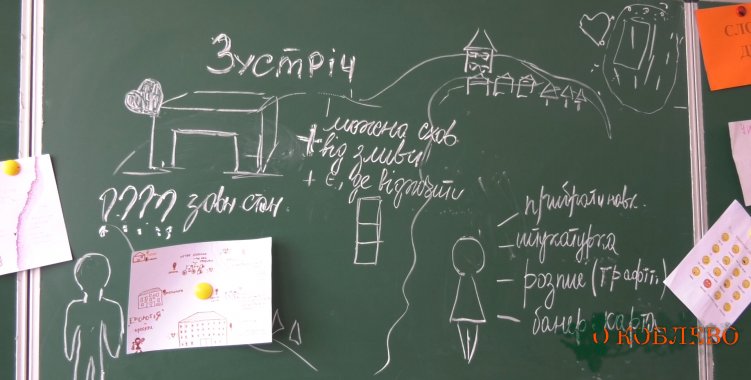 Зустріч
+ можна схов.
від зливи
+ є, де відпочити
????? зовн стан.
прибрати навк.
штукатурка
розпис (графіті)
банер карта
КОБЛЕВО